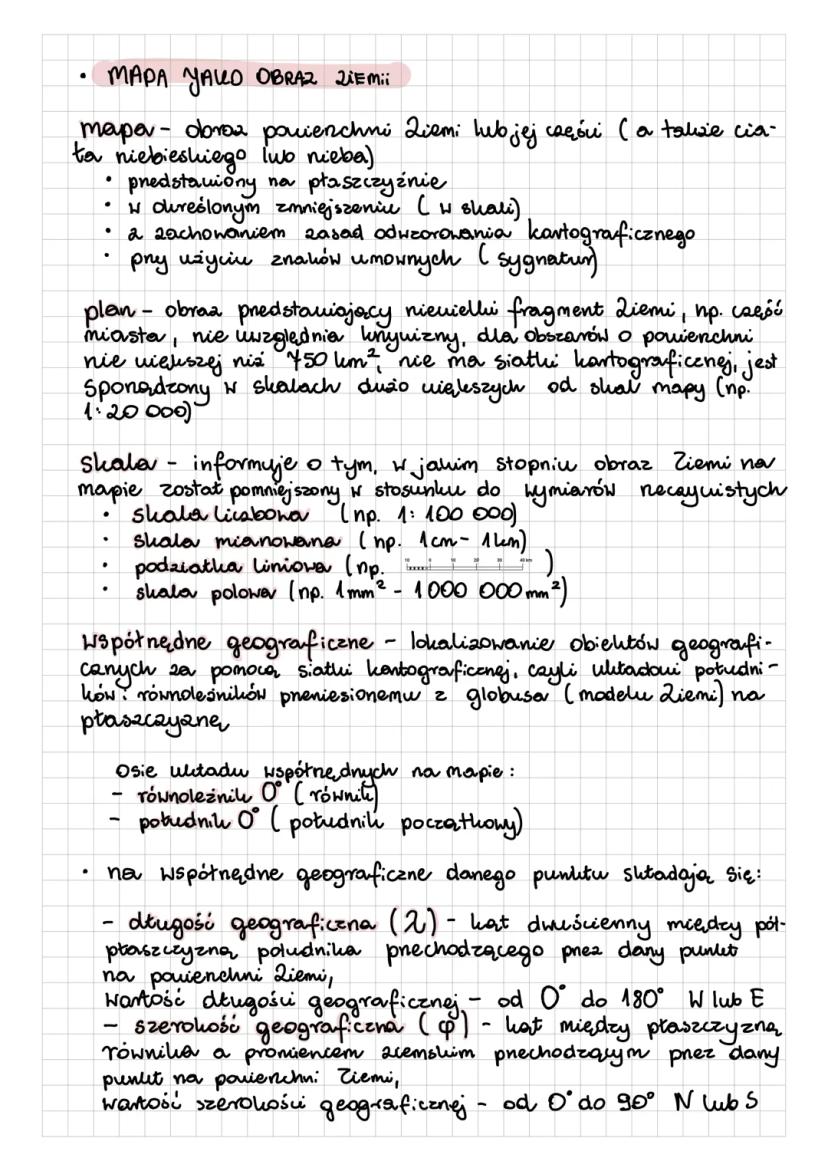 • MAPA JAKO OBRAZ ZIEMii
mapa - obraz powierzchni Ziemi lub jej części ( a także cia-
ła niebieskiego lub nieba)
• przedstawiony na płaszczyźnie
• w określonym zmniejszeniu ( w skali)
• z zachowaniem zasad odwzorowania kartograficznego
• przy użyciu znaków umownych ( sygnatur)
plan - obraz przedstawiający niewielki fragment Ziemi, np. część
miasta, nie uwzględnia krzywizny, dla obszarów o powierzchni
nie większej niż 750 km², nie ma siatki kartograficznej, jest
sporządzony w skalach dużo większych od skal mapy (np.
1:20 000)
skala - informuje o tym, w jakim stopniu obraz Ziemi na
mapie został pomniejszony w stosunku do wymiarów rzeczywistych
• skala liczbowa (np. 1: 100 000)
• skala mianowana (np. 1cm - 1km)
• podziałka liniowa (np. 10 0 10 20 30 40 km )
• skala polowa (np. 1mm² - 1 000 000 mm²)
współrzędne geograficzne - lokalizowanie obiektów geografi-
cznych za pomocą siatki kartograficznej, czyli układowi południ-
ków i równoleżników przeniesionemu z globusa (modelu Ziemi) na
płaszczyznę
Osie układu współrzędnych na mapie :
- równoleżnik 0° ( równik)
- południk 0° ( południk początkowy)
• na współrzędne geograficzne danego punktu składają się:
- długość geograficzna (λ) - kąt dwuścienny między pół-
płaszczyzną południka przechodzącego przez dany punkt
na powierzchni Ziemi,
wartość długości geograficznej - od 0° do 180° W lub E
- szerokość geograficzna (φ) - kąt między płaszczyzną
równika a promieniem ziemskim przechodzącym przez dany
punkt na powierzchni Ziemi,
wartość szerokości geograficznej - od 0° do 90° N lub S